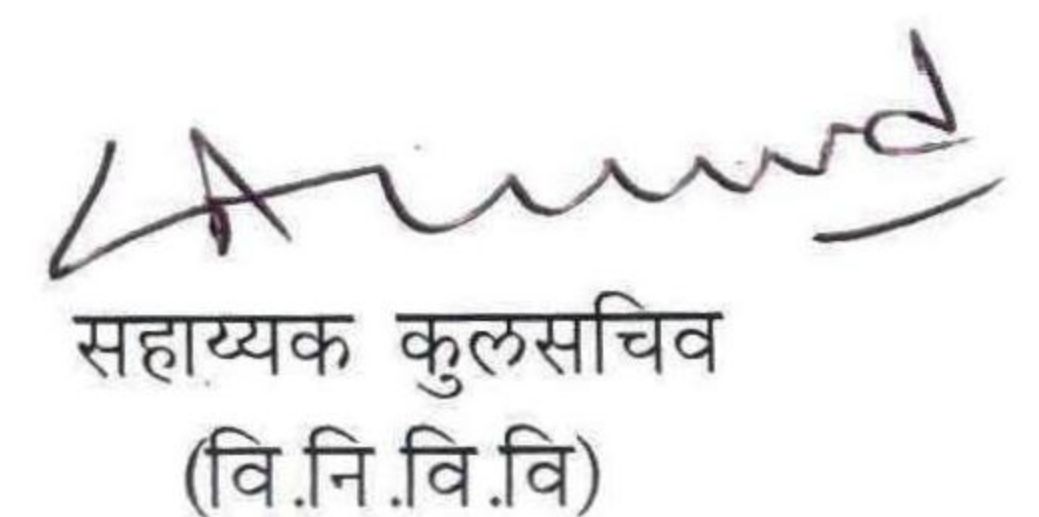 सहाय्यक कुलसचिव
(वि.नि.वि.वि)